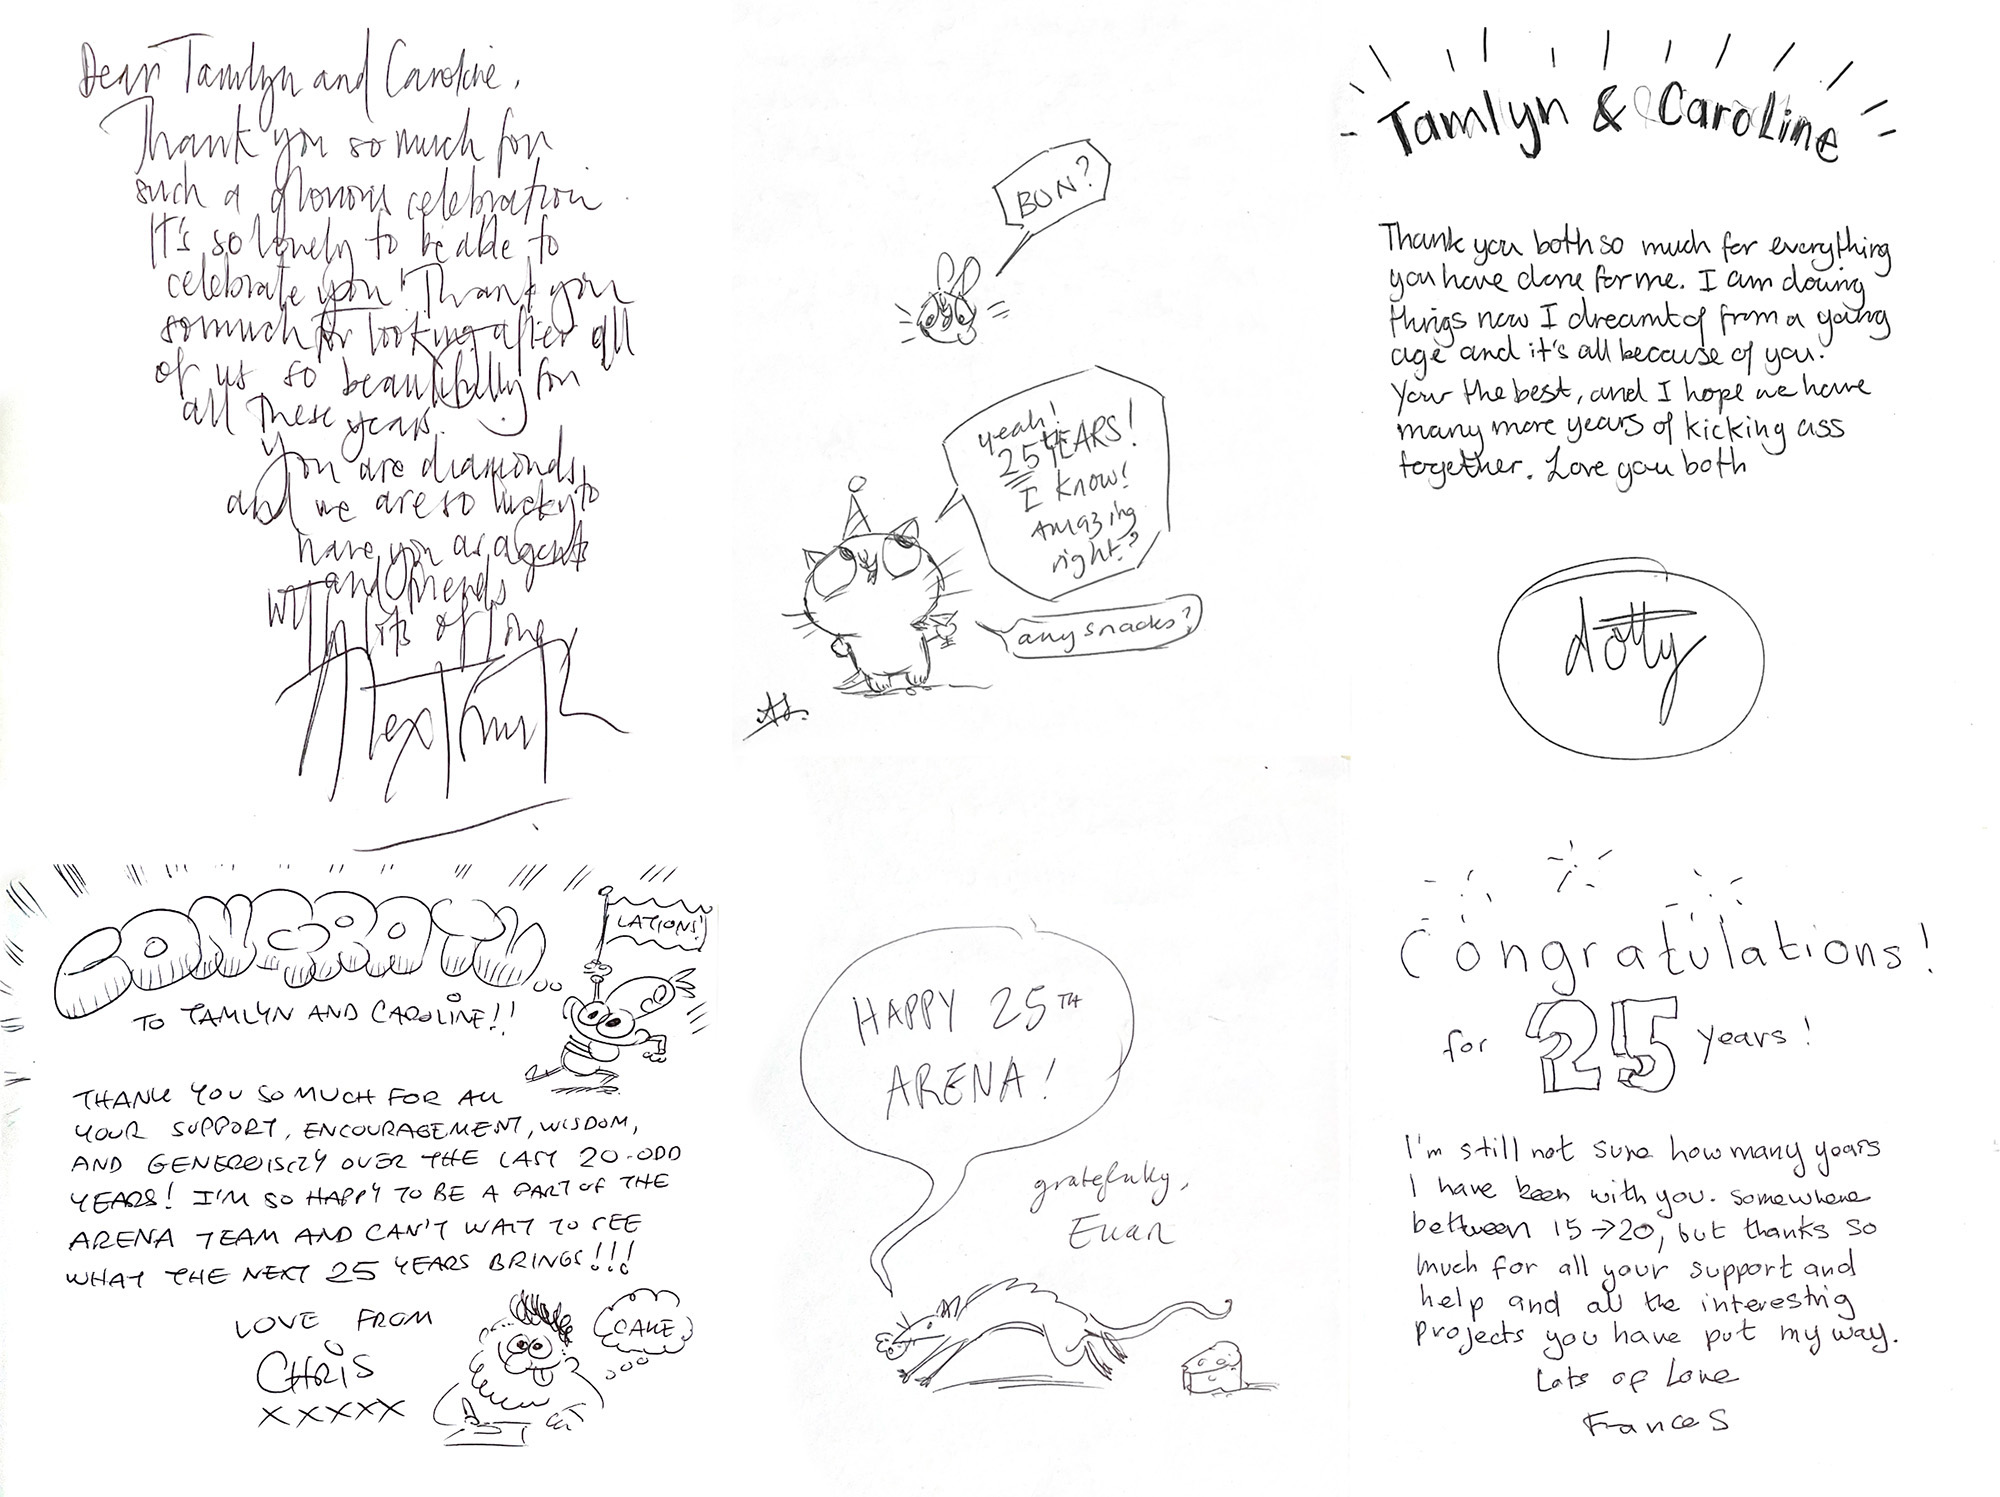 Dear Tamlyn and Caroline,
Thank you so much for
such a glorious celebration
It's so lovely to be able to
celebrate you! Thank you
so much for looking after all
of us so beautifully for
all these years.
You are diamonds,
and we are so lucky to
have you as agents
and friends
with lots of love
Alex T
BUN?
yeah!
25 YEARS!
I know!
amazing
right?
any snacks?
Tamlyn & Caroline
Thank you both so much for everything
you have done for me. I am doing
things now I dreamt of from a young
age and it's all because of you.
Your the best, and I hope we have
many more years of kicking ass
together. Love you both
dotty
CONGRATU
LATIONS!
TO TAMLYN AND CAROLINE!!
THANK YOU SO MUCH FOR ALL
YOUR SUPPORT, ENCOURAGEMENT, WISDOM,
AND GENEROISITY OVER THE LAST 20-ODD
YEARS! I'M SO HAPPY TO BE A PART OF THE
ARENA TEAM AND CAN'T WAIT TO SEE
WHAT THE NEXT 25 YEARS BRINGS!!!
LOVE FROM
CHRIS
XXXXX
CAKE
HAPPY 25TH
ARENA!
gratefully,
Euan
Congratulations!
for 25 years!
I'm still not sure how many years
I have been with you. Somewhere
between 15→20, but thanks so
much for all your support and
help and all the interesting
projects you have put my way.
Lots of Love
Frances